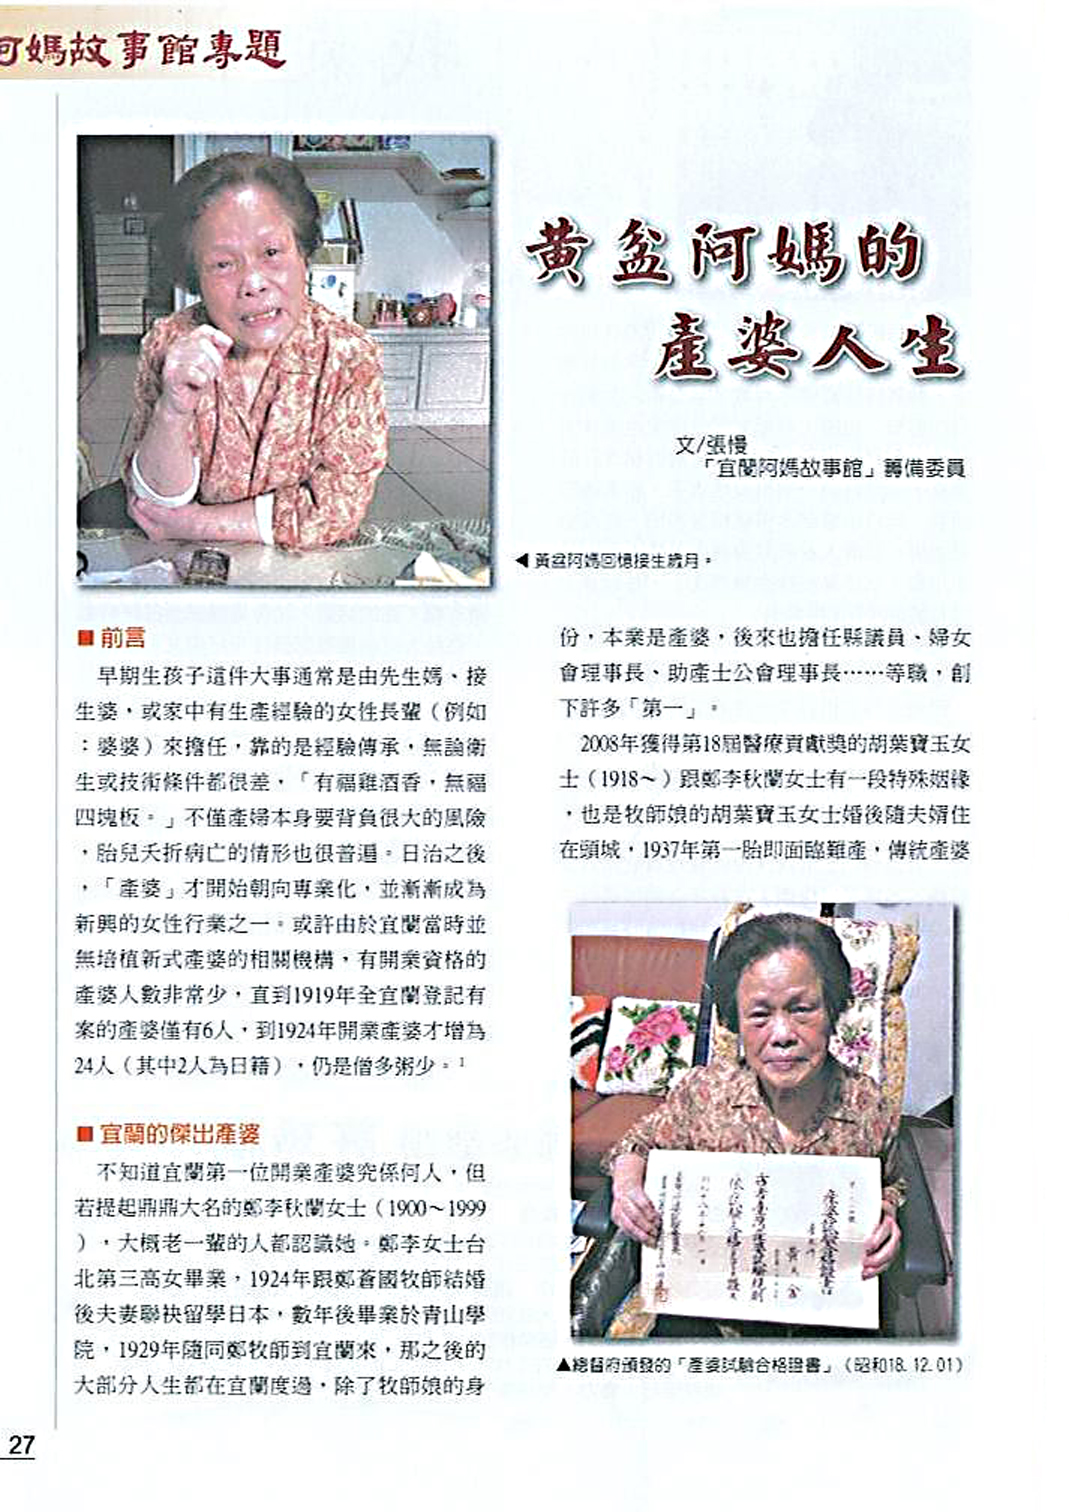 阿媽故事館專題
黃盆阿媽的
產婆人生
文/張慢
「宜蘭阿媽故事館」籌備委員
◀ 黃盆阿媽回憶接生歲月。
■ 前言
早期生孩子這件大事通常是由先生媽、接
生婆,或家中有生產經驗的女性長輩(例如
:婆婆)來擔任,靠的是經驗傳承,無論衛
生或技術條件都很差,「有福雞酒香,無福
四塊板。」不僅產婦本身要背負很大的風險
,胎兒夭折病亡的情形也很普遍。日治之後
,「產婆」才開始朝向專業化,並漸漸成為
新興的女性行業之一。或許由於宜蘭當時並
無培植新式產婆的相關機構,有開業資格的
產婆人數非常少,直到1919年全宜蘭登記有
案的產婆僅有6人,到1924年開業產婆才增為
24人(其中2人為日籍),仍是僧多粥少。1
■ 宜蘭的傑出產婆
不知道宜蘭第一位開業產婆究係何人,但
若提起鼎鼎大名的鄭李秋蘭女士(1900～1999
),大概老一輩的人都認識她。鄭李女士台
北第三高女畢業,1924年跟鄭蒼國牧師結婚
後夫妻聯袂留學日本,數年後畢業於青山學
院,1929年隨同鄭牧師到宜蘭來,那之後的
大部分人生都在宜蘭度過,除了牧師娘的身
份,本業是產婆,後來也擔任縣議員、婦女
會理事長、助產士公會理事長……等職,創
下許多「第一」。
2008年獲得第18屆醫療貢獻獎的胡葉寶玉女
士(1918～)跟鄭李秋蘭女士有一段特殊姻緣
,也是牧師娘的胡葉寶玉女士婚後隨夫婿住
在頭城,1937年第一胎即面臨難產,傳統產婆
產婆試驗合格證書
▲總督府頒發的「產婆試驗合格證書」(昭和18.12.01)
27